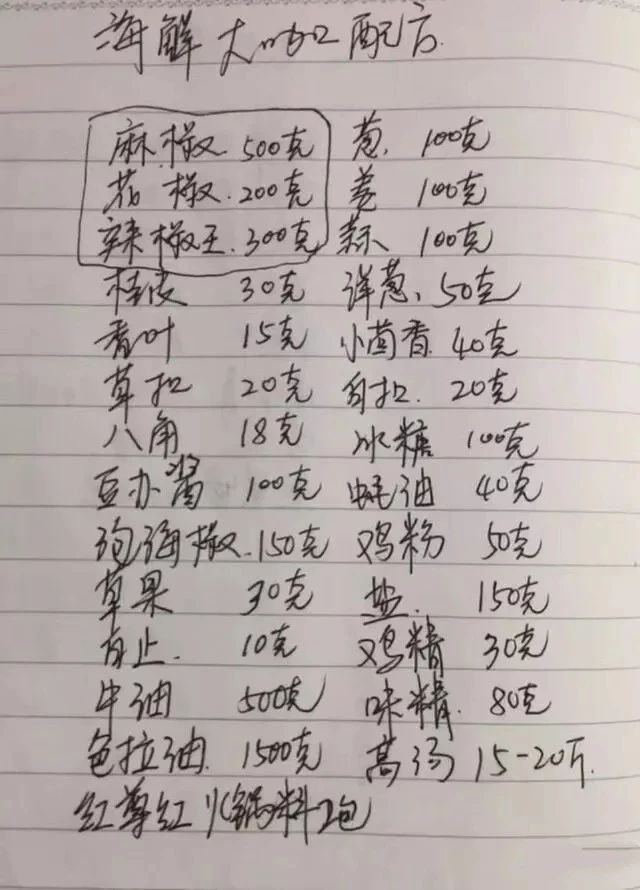 海鲜大咖配方
麻椒.500克 葱.100克
花椒.200克 姜100克
辣椒王.300克 蒜100克
桂皮30克 洋葱、50克
香叶15克 小茴香.40克
草扣20克 白扣.20克
八角18克 冰糖100克
豆办酱100克 蚝油40克
泡海椒.150克 鸡粉50克
草果30克 盐.150克
白止.10克 鸡精30克
牛油500克 味精.80克
色拉油.1500克 高汤15-20斤.
红尊红火锅料2包